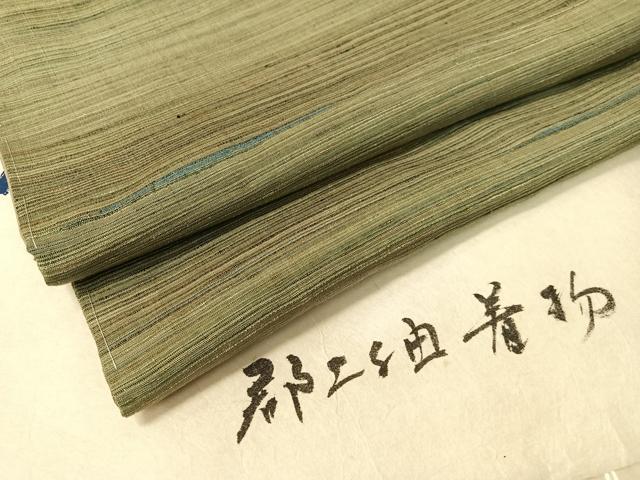 郡上紬着物